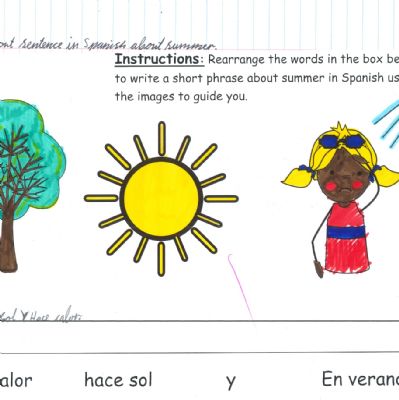 sentence in Spanish about summer.
Instructions: Rearrange the words in the box be
to write a short phrase about summer in Spanish us
the images to guide you.
Sol Y Hace calor.
alor hace sol y En veran